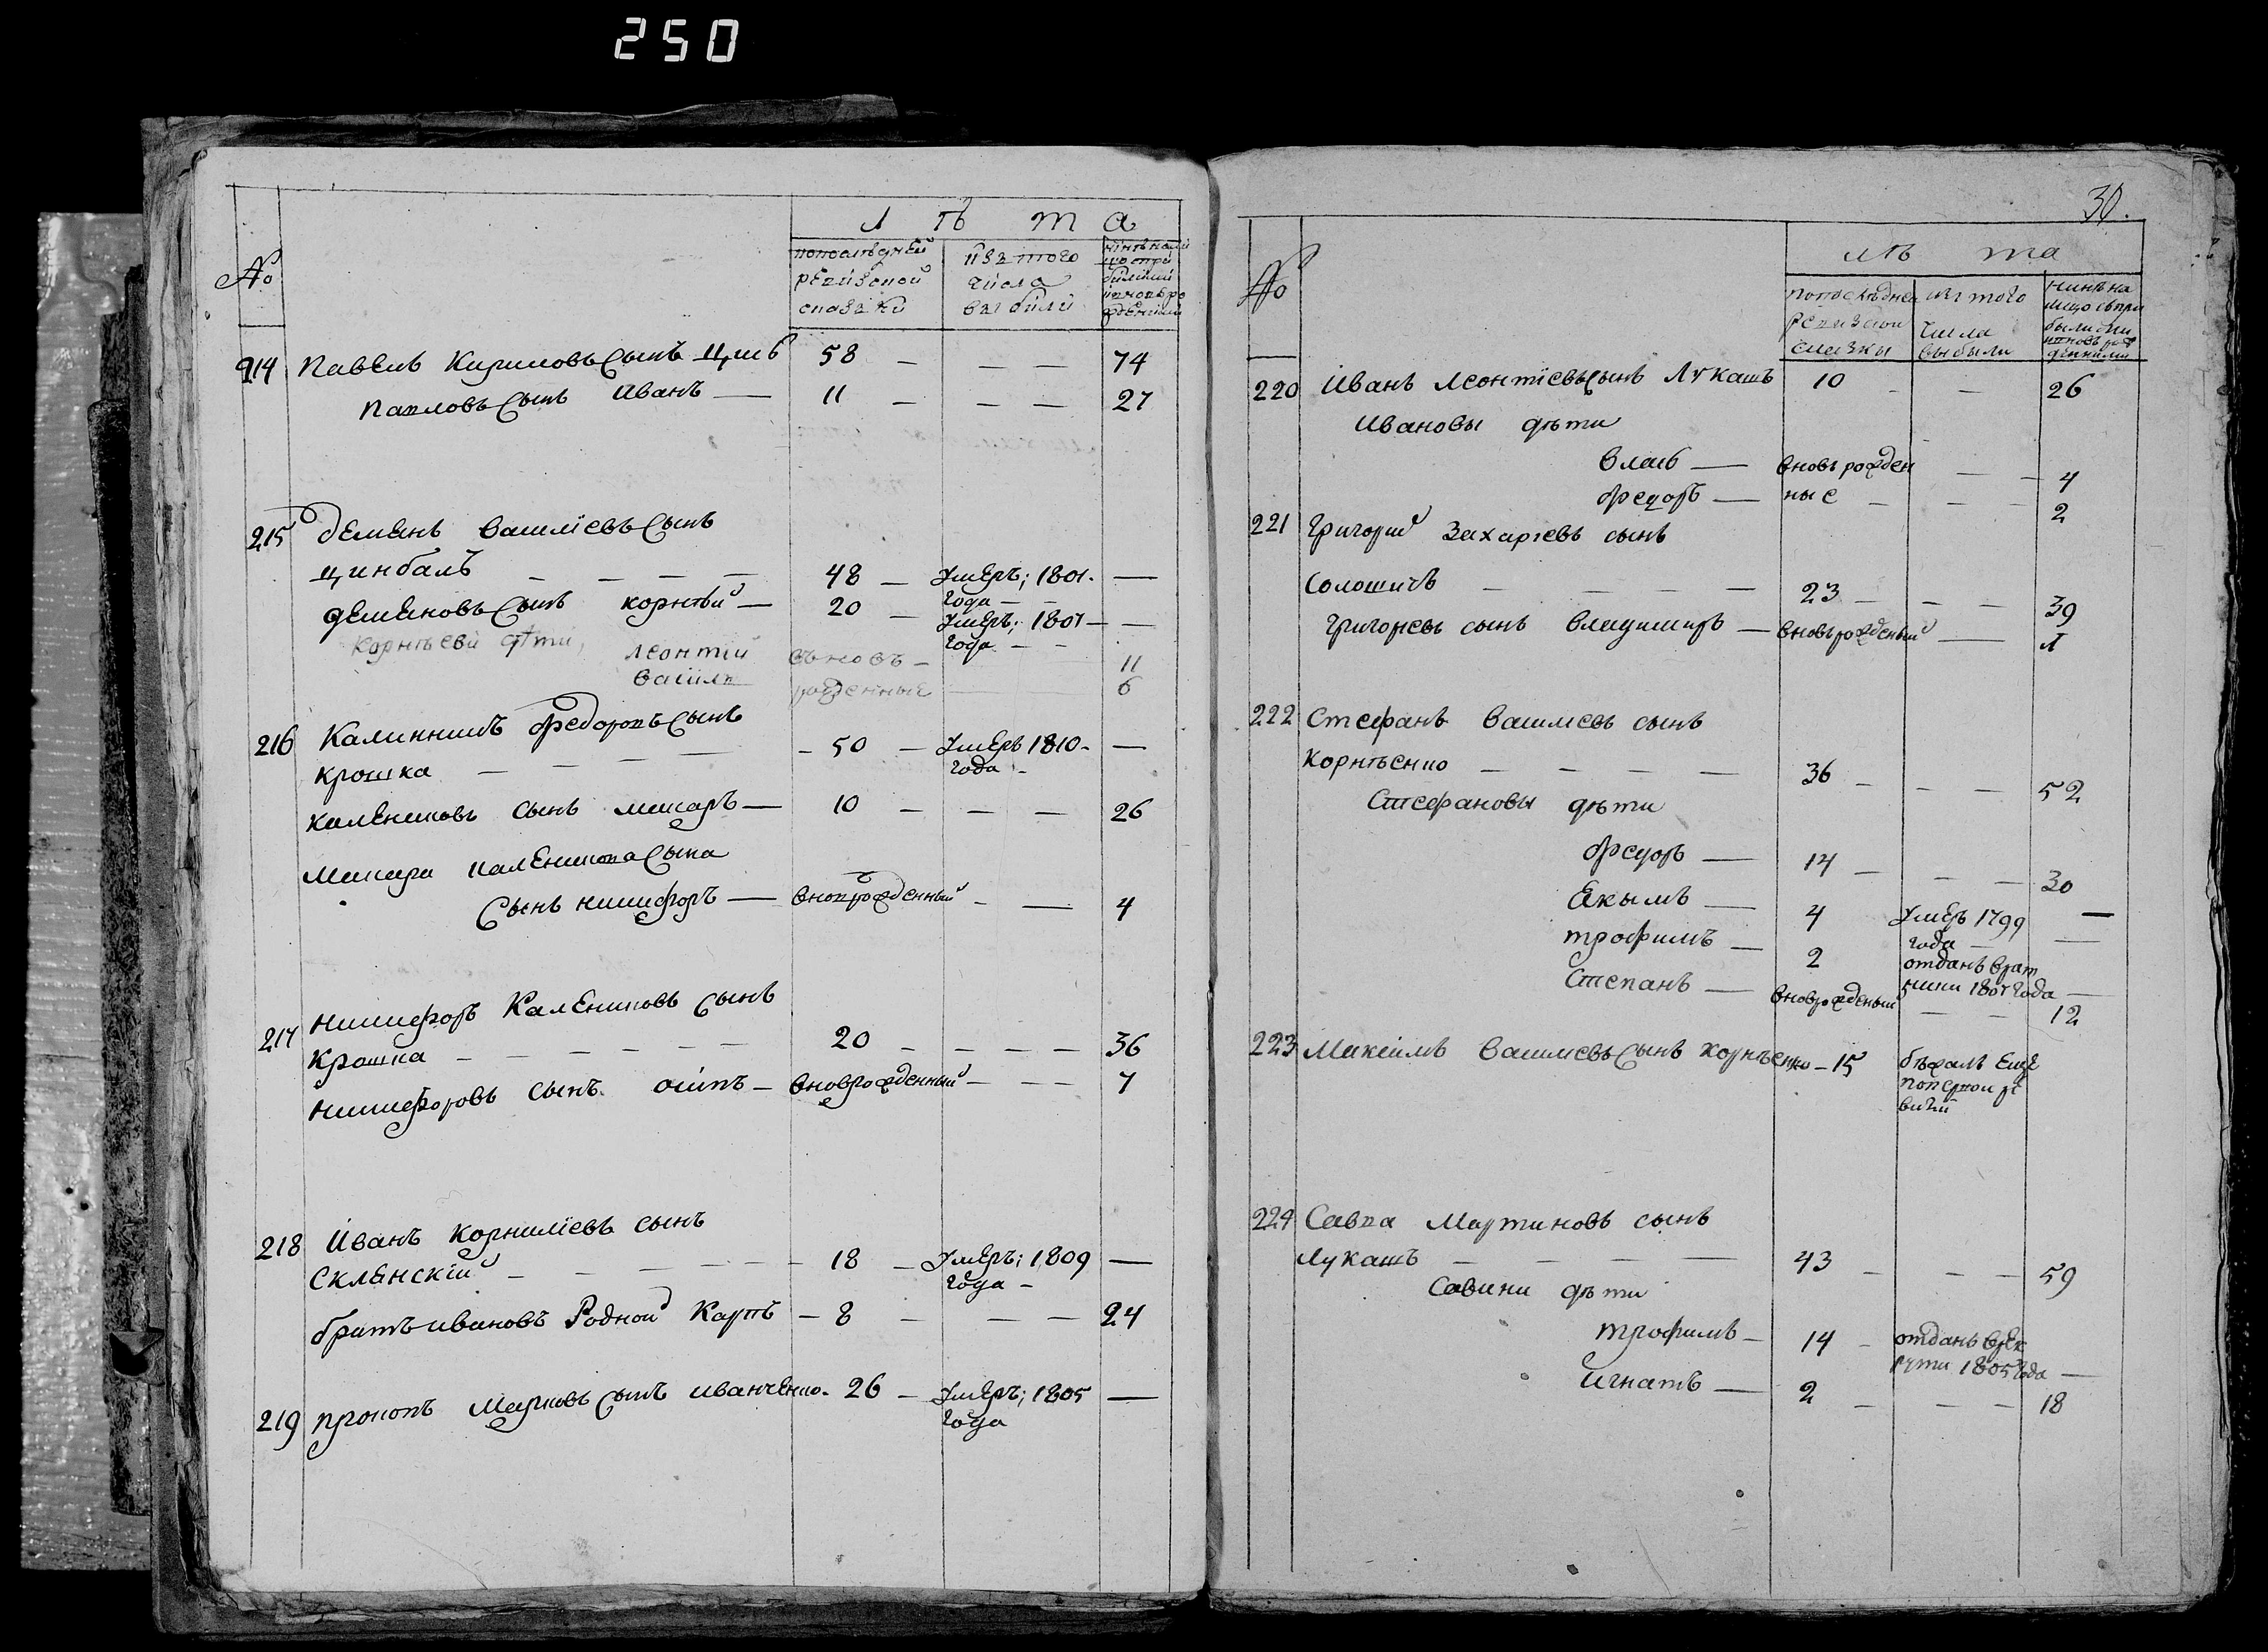 250
№
Лѣта
попослѣдней ревизской сказки
изъ того числа выбыли
214 Павелъ Кириловъ сынъ 58 — — — 74
Павловъ сынъ Иванъ — 11 — — — 27
215 Деменъ Василіевъ сынъ
Цинбалъ — — — — 48 — Умеръ; 1801. —
года —
Деменовъ сынъ Корнѣй — 20 — Умеръ; 1807 — —
года — —
Корнѣеви дѣти, Леонтій вьновь — 11
Василь рожденные — 6
216 Калинникъ Федоровъ сынъ
Крошка — — — — - 50 — Умеръ 1810 - —
года -
Калениковъ сынъ Макаръ — 10 — — — 26
Макара Каленикова сына
сынъ Никифоръ — вноврожденный - — 4
217 Никифоръ Калениковъ сынъ
Крошка — — — — — — 20 — — — — 36
Никифоровъ сынъ Осипъ — вноврожденный — — — 7
218 Иванъ Корнилієвъ сынъ
Склєнскій — — — — — — 18 — Умеръ; 1809 —
года —
братъ Ивановъ Родной Карпъ — 8 — — — 24
219 Прокопъ Марковъ сынъ Иванченко - 26 — Умеръ; 1805 —
года
30.
№
лѣта
попослѣдней ревизской сказки
изъ того числа выбыли
220 Иванъ Леонтієвъ сынъ Лукашъ 10 - — 26
Ивановы дѣти
Власъ — вновъ рожден — — 4
Федоръ — ные — — — 2
221 Григорий Захаріевъ сынъ
Солошичъ — — — — 23 — — — 39
Григориевъ сынъ Владимиръ — вновърожденый —
222 Стефанъ Василиевъ сынъ
Корнѣенко — — — — 36 — — — 52
Стефановы дѣти
Федоръ — 14 — — — 30
Екымъ — 4 Умеръ 1799 —
года — —
Трофимъ — 2 отданъ врат
ники 1807 года —
Степанъ — вноврожденый — — 12
223 Максимъ Василиевъ сынъ Корнѣенко — 15 бѣжалъ еще
попервои ре
визи
224 Савва Мартиновъ сынъ
Лукашъ — — — — 43 — — — 59
Савини дѣти
Трофимъ — 14 — отданъ врек
рути 1805 года —
Игнатъ — 2 — — — 18